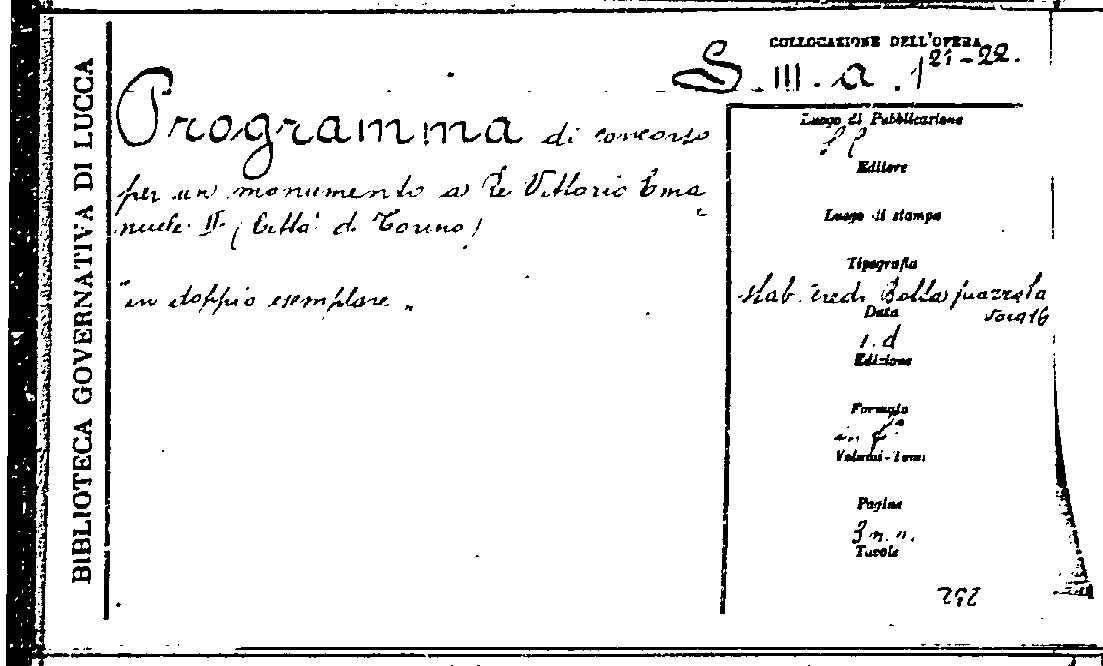 BIBLIOTECA GOVERNATIVA DI LUCCA
COLLOCAZIONE DELL'OPERA
S. III. a. 1 21-22.
Programma di concorso
per un monumento a Re Vittorio Ema
nuele II (Città di Torino)
"in doppio esemplare"
Luogo di Pubblicazione
Editore
Luogo di stampa
Tipografia
Stab. Eredi Botta piazzola
Data
s. d
Edizione
Formato
in f°
Volumi-Tomi
Pagine
3 n. n.
Tavole
292